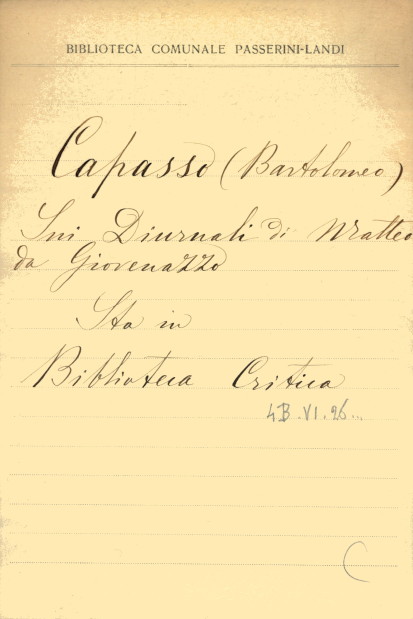 BIBLIOTECA COMUNALE PASSERINI-LANDI
Capasso (Bartolomeo)
Sui Diurnali di Matteo
da Giovenazzo
Sta in
Biblioteca Critica
4B.VI.26...